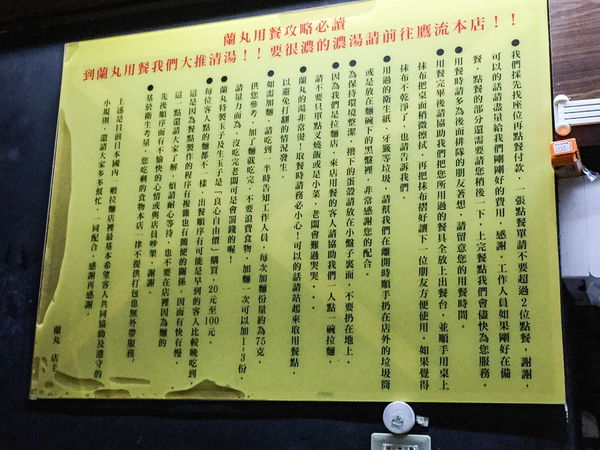 蘭丸用餐攻略必讀
到蘭丸用餐我們大推清湯!!要很濃的濃湯請前往鷹流本店!!
●我們採先找座位再點餐付款,一張點餐單請不要超過2位點餐,謝謝,
可以的話請盡量給我們剛剛好的費用,感謝。工作人員如果剛好在備
餐,點餐的部分還需要請您稍後一下,上完餐點我們會儘快為您服務。
●用餐時請多為後面排隊的朋友著想,請留意您的用餐時間。
●用餐完畢後請協助我們把您所用過的餐具全放上出餐台,並順手用桌上
抹布把桌面稍微擦拭,再把抹布摺好讓下一位朋友方便使用,如果覺得
抹布不乾淨了,也請告訴我們。
●用過的衛生紙,牙籤等垃圾,請幫我們在離開時順手扔在店外的垃圾筒
或是放在麵碗下的黑盤裡,非常感謝您的配合。
●為保持環境整潔,撥下的蛋殼請放在小盤子裏面,不要扔在地上。
●因為我們是拉麵店,來店用餐的客人請協助我們一人點一碗拉麵,
請不要只單點叉燒飯或是小菜,老闆會難過哭哭...
●蘭丸的湯非常燙!取餐時請務必小心!可以的話請站起來取用餐點,
以避免打翻的情況發生。
●如需加麵,請吃到一半時告知工作人員,每次加麵份量約為75克,
供您參考,加了麵就吃完,不要浪費食物,加麵一次可以加1/3份,
請量力而為,沒吃完老闆可是會罰錢的喔!
●蘭丸特製玉子及生玉子是「良心自由價」購買,20元至100元。
●每位客人點的麵都不一樣,出餐順序有可能是早到的客人比較晚吃到,
這是因為餐點製作的程序有複雜也有簡便的關係,因而有快有慢,
這一點還請大家了解,煩請耐心等待,也不要在店裡因為麵的
先後順序而有不愉快的心情或與店員吵架,謝謝。
●基於衛生考量,您吃剩的食物本店一律不提供打包也無外帶服務。
上述是目前日本國內一般拉麵店裡最基本希望客人共同協助及遵守的
小規則,還請大家多多幫忙,一同配合,感謝再感謝。
蘭丸 店主